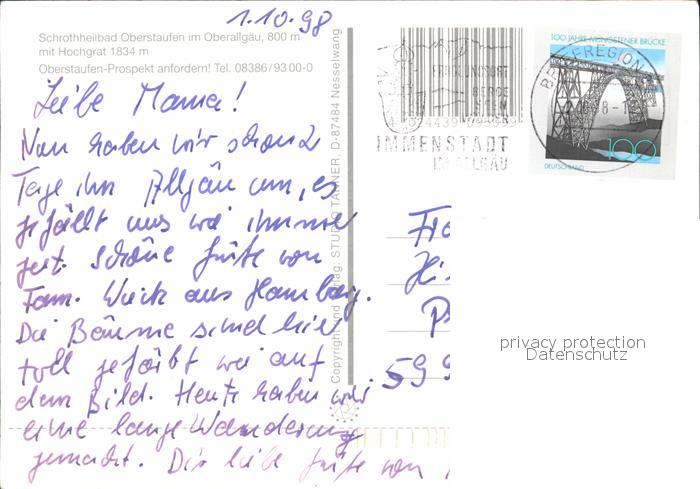 1.10.98
Schrothheilbad Oberstaufen im Oberallgäu, 800 m
mit Hochgrat 1834 m
Oberstaufen-Prospekt anfordern! Tel. 08386/9300-0
Liebe Mama!
Nun haben wir schon 2
Tage im Allgäu um, es
gefällt uns wie immer
gut. Schöne Grüße von
Fam. aus Hamburg.
Die Bäume sind hier
toll gefärbt wie auf
dem Bild. Heute haben wir
eine lange Wanderung
gemacht. Dir liebe Grüße von
Copyright und Verlag: STUDIO TANNER, D-87484 Nesselwang
IMMENSTADT
IM ALLGÄU
BRIEFREGION
100 JAHRE MÜNGSTENER BRÜCKE
100
DEUTSCHLAND
599
privacy protection
Datenschutz